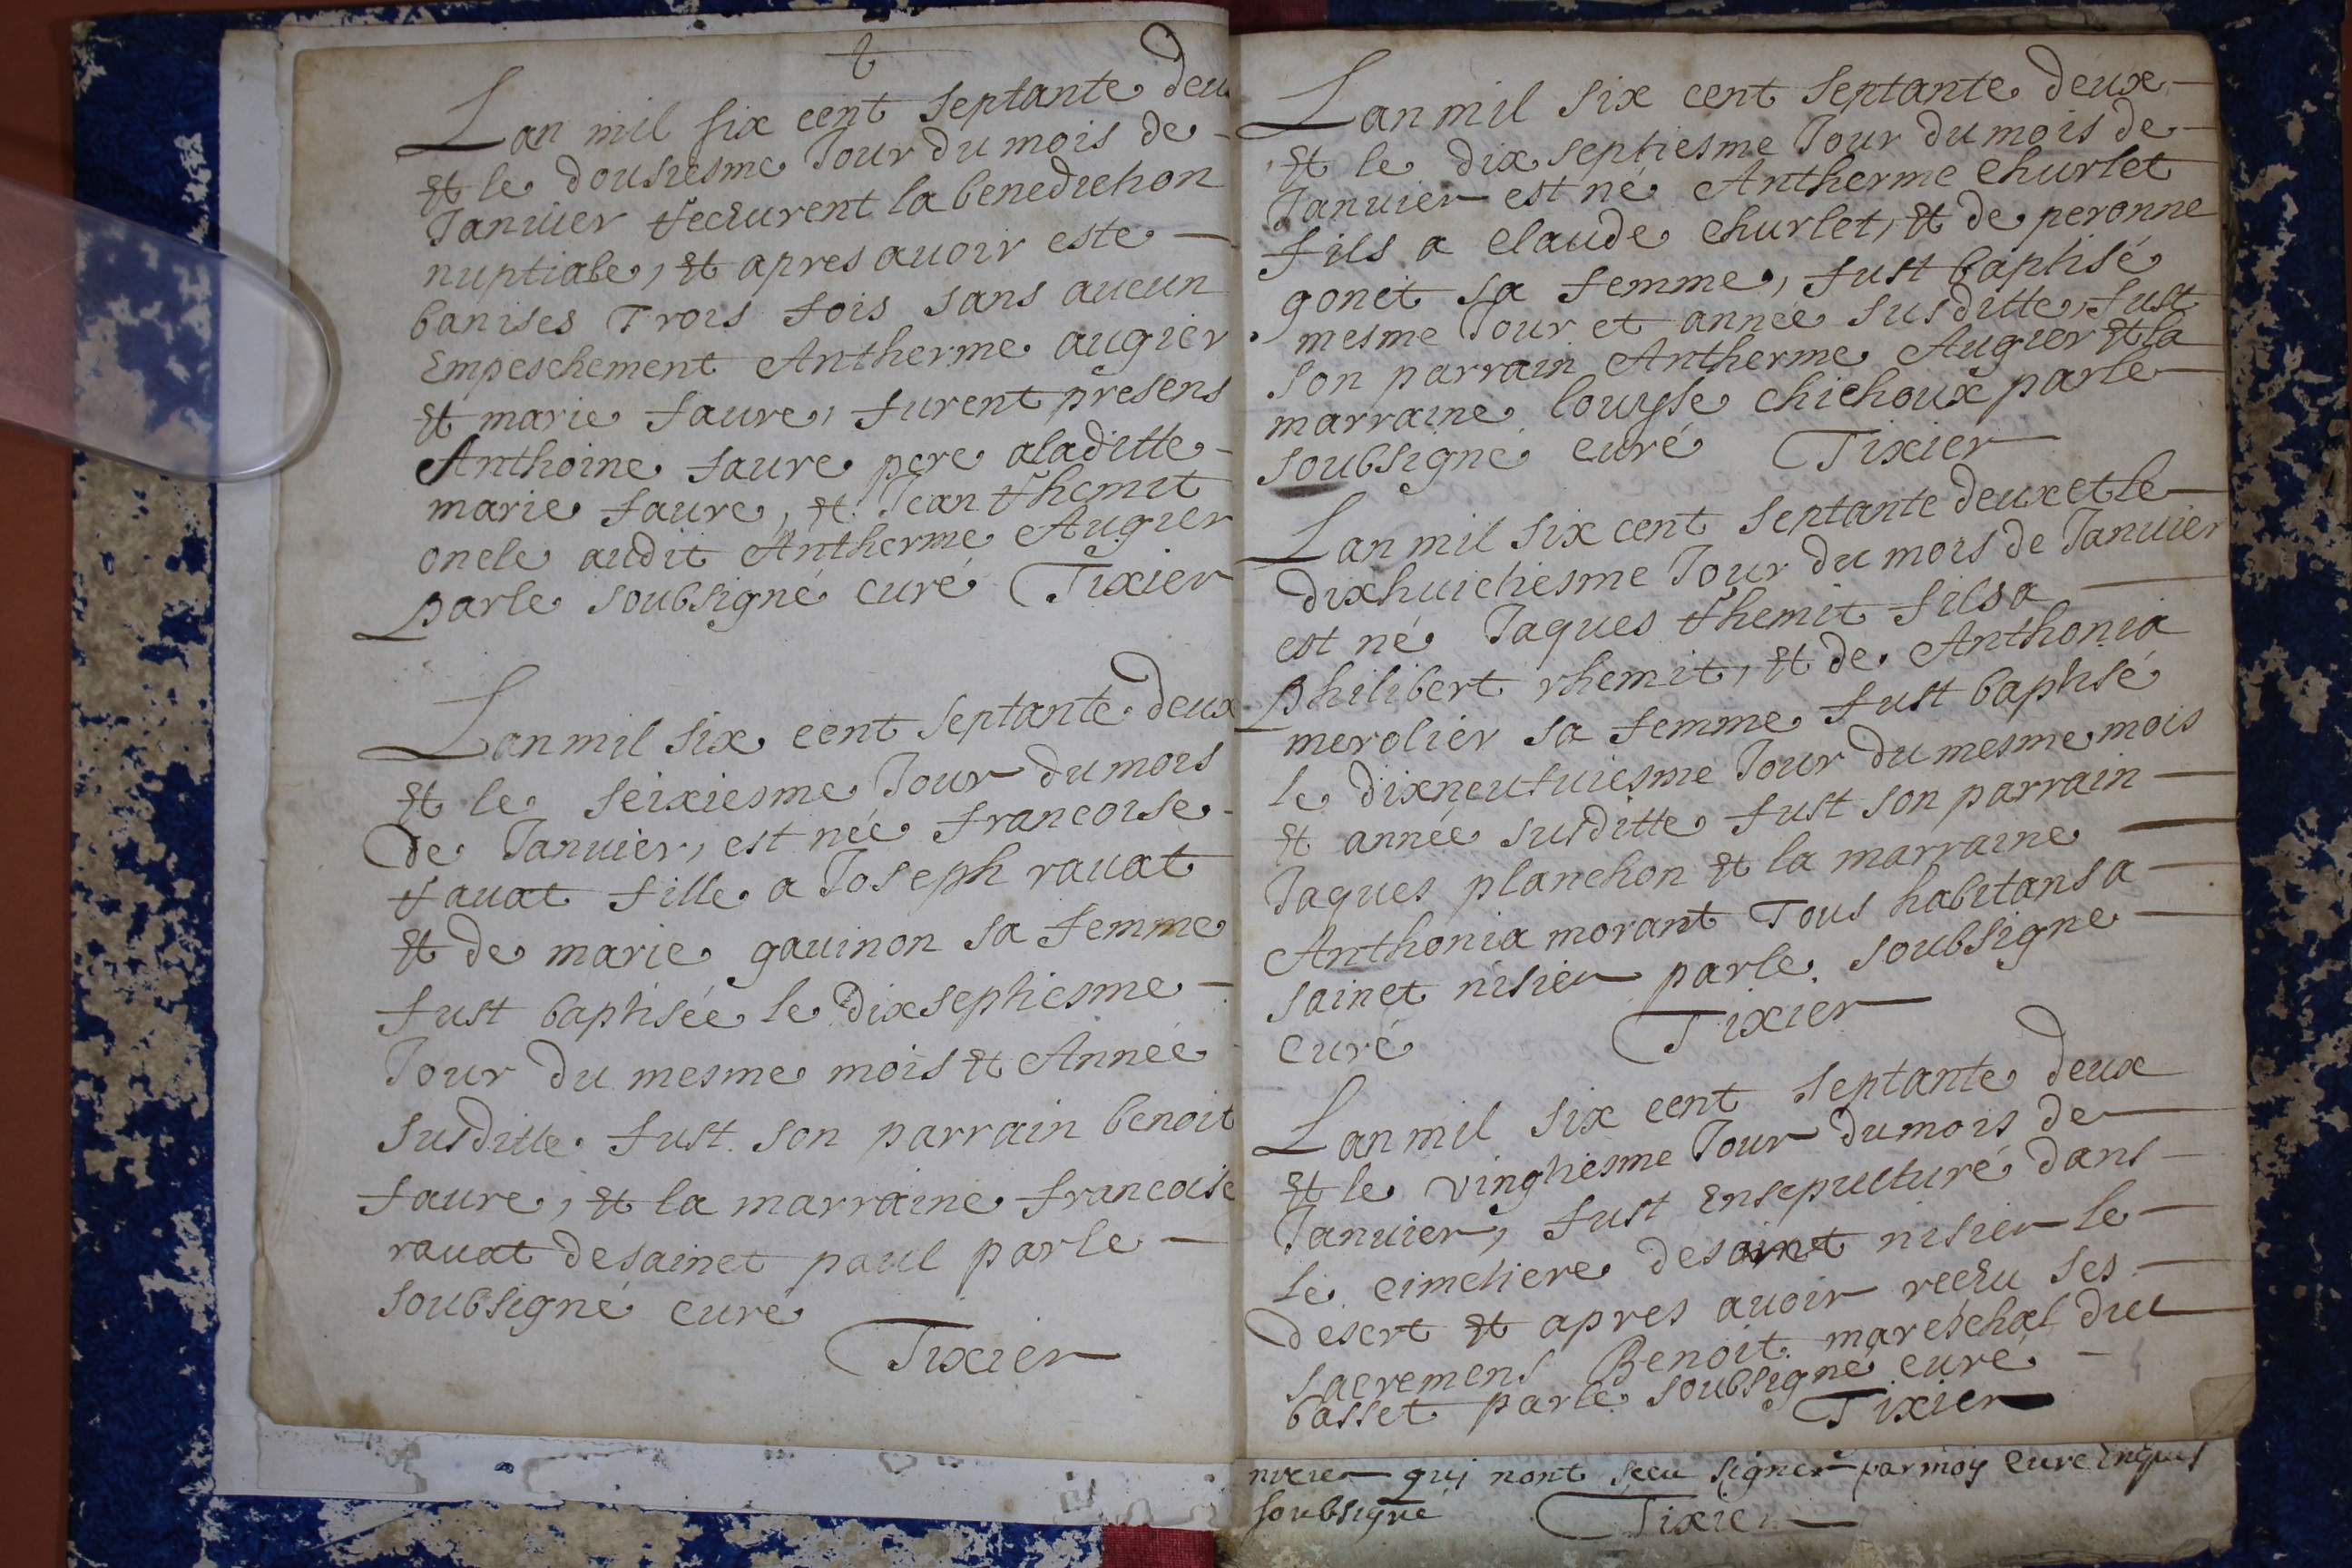 Lan mil six cent septante deux
Et le dousiesme Jour du mois de
Januier receurent la benediction
nuptiale, Et apres auoir este
banises Trois fois sans aucun
Empeschement Antherme augier
Et marie faure, furent presens
Anthoine faure pere aladitte
marie faure, et Jean rhemit
oncle audit Antherme Augier
parle soubsigné curé Tixier
Lan mil six cent septante deux
Et le seixiesme Jour du mois
de Januier, est née francoise
rauat fille a Joseph rauat
Et de marie gauinon sa femme
fust baptisée le dixseptiesme
Jour du mesme mois Et Année
susditte fust son parrain benoit
faure, Et la marraine francoise
rauat desainct paul parle
soubsigné curé
Tixier
Lan mil six cent septante deux
Et le dix septiesme Jour du mois de
Januier est né Antherme churlet
fils a claude churlet, Et de peronne
gonet sa femme, fust baptisé
mesme Jour et année susditte, fust
son parrain Antherme Augier Et la
marraine louyse chichoux parle
soubsigné curé Tixier
Lan mil six cent septante deux et le
dixhuictiesme Jour du mois de Januier
est né Jaques rhemit fils a
philibert rhemit, Et de Anthonia
merolier sa femme fust baptisé
le dixneufuiesme Jour du mesme mois
Et année susditte fust son parrain
Jaques planchon Et la marraine
Anthonia morant Tous habitans a
sainct nisier parle soubsigne
curé Tixier
Lan mil six cent septante deux
Et le vingtiesme Jour du mois de
Januier, fust Ensepulturé dans
le cimetiere desainct nisier le
desert Et apres auoir receu ses
sacremens Benoit mareschal du
basset parle soubsigné curé
Tixier
nizier qui nont sceu signer par moy curé
soubsigné Tixier